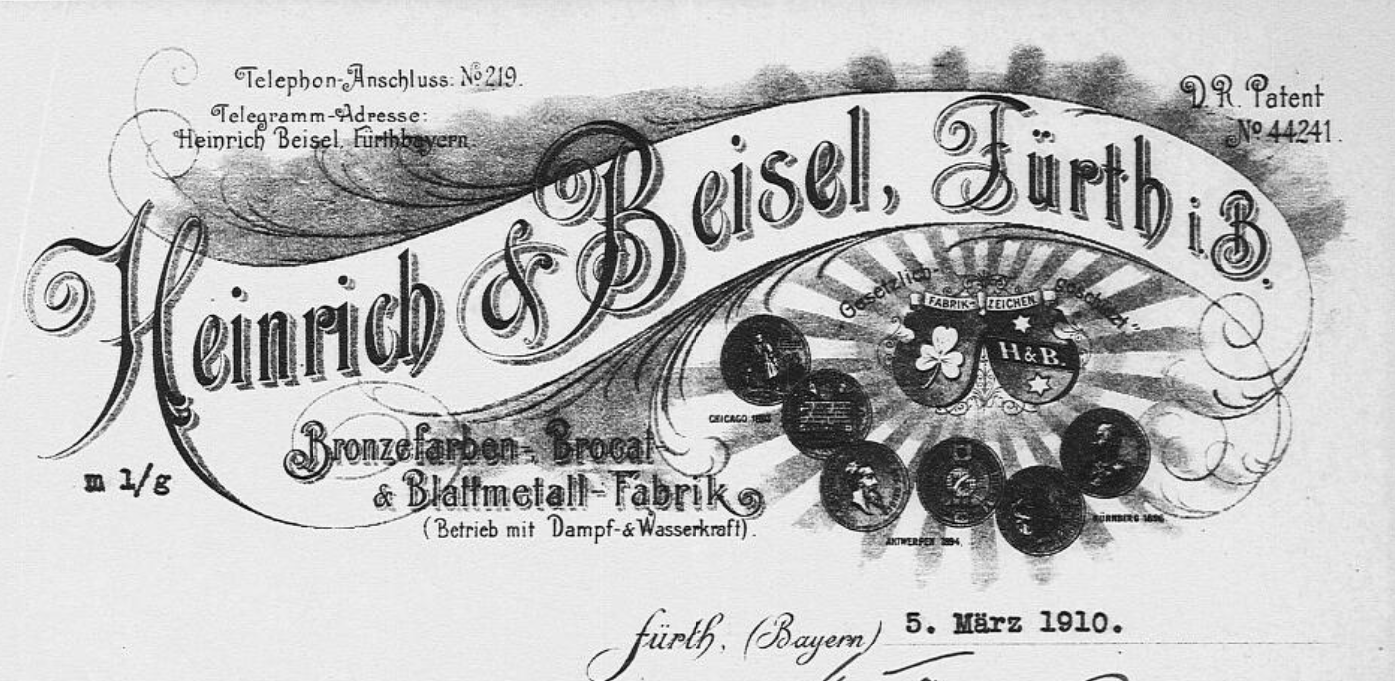 Telephon-Anschluss: No 219.
Telegramm-Adresse:
Heinrich Beisel, Fürthbayern.
D. R. Patent
No 44241.
Heinrich & Beisel, Fürth i B.
Gesetzlich- geschützt
FABRIK-ZEICHEN
H&B.
CHICAGO 1893
ANTWERPEN 1894.
NÜRNBERG 1896
Bronzefarben-, Brocat-
& Blattmetall-Fabrik
(Betrieb mit Dampf-& Wasserkraft).
m 1/g
fürth, (Bayern) 5. März 1910.